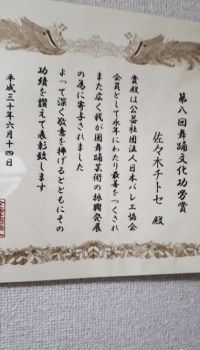 第八回舞踊文化功労賞
佐々木チトセ 殿
貴殿は公益社団法人日本バレエ協会
会員として永年にわたり最善をつくされ
また広く我が国舞踊芸術の振興発展
の為に寄与されました
よって深く敬意を捧げるとともにその
功績を讃えて表彰致します
平成三十年六月十四日